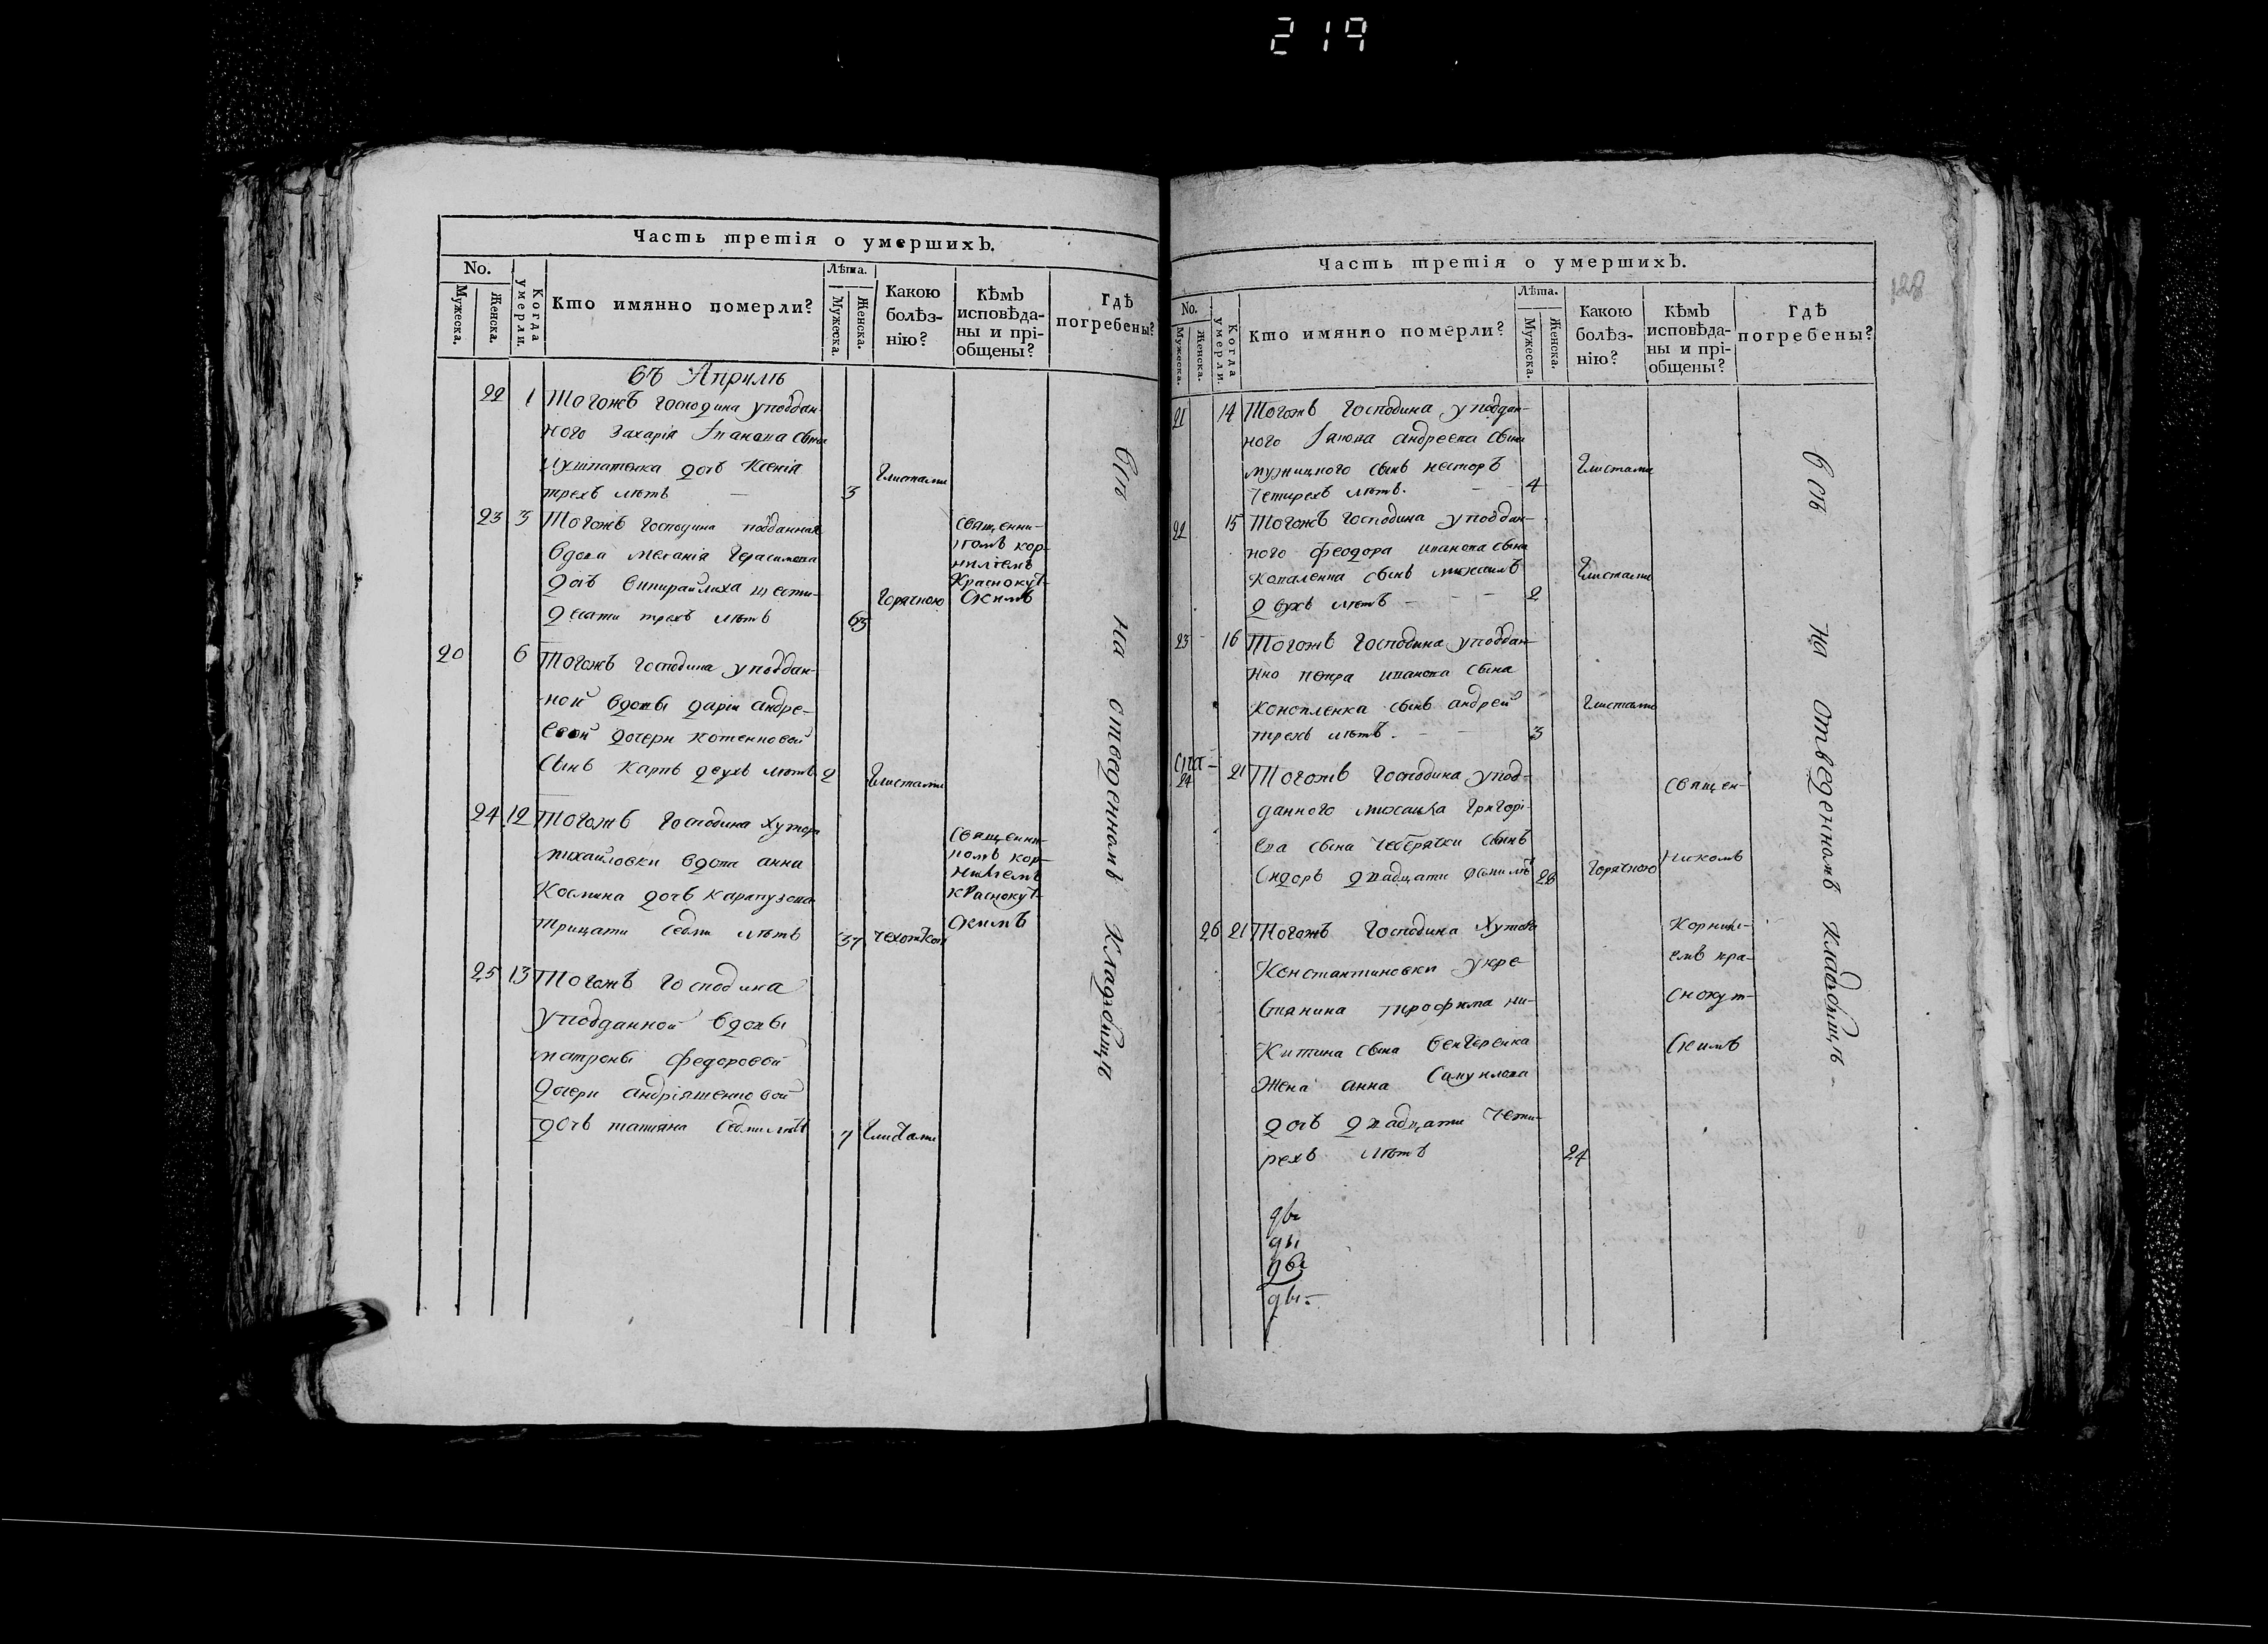 219
Часть третія о умершихъ.
No.
Мужеска.
Женска.
Когда умерли.
Кто имянно померли?
Лѣта.
Мужеска.
Женска.
Какою болѣз-
нію?
Кѣмъ
исповѣда-
ны и прі-
общены?
Гдѣ
погребены?
въ Априлѣ
22 1 Тогожъ господина уподдан-
ного Захарія
дочь Ксенія
трехъ лѣтъ — 3 глистами
23 3 Тогожъ господина подданная
вдова Меланія Герасимова
дочь шести-
десяти трехъ лѣтъ 63 горячкою
священи-
комъ Кор-
ниліемъ
Краснокут-
скимъ
20 6 Тогожъ господина уподдан-
ной вдовы Даріи Андре-
евой дочери Котенковой
сынъ Карпъ двухъ лѣтъ 2 глистами
24 12 Тогожъ господина хутора
Михайловки вдова Анна
Космина дочь Карапузова
трицати седми лѣтъ 37 чехоткою
священи-
комъ Кор-
ниліемъ
Краснокут-
скимъ
25 13 Тогожъ господина
уподданной вдовы
Матроны Федоровой
дочери Андріяшенковой
дочь татияна седми лѣтъ 7 глистами
всѣ на отведенномъ кладбищѣ
128
Часть третія о умершихъ.
No.
Мужеска.
Женска.
Когда умерли.
Кто имянно померли?
Лѣта.
Мужеска.
Женска.
Какою
болѣз-
нію?
Кѣмъ
исповѣда-
ны и прі-
общены?
Гдѣ
погребены?
21 14 Тогожъ господина уподдан-
ного Якова андреева сына
музницкого сынъ несторъ
четирехъ лѣтъ. — — 4 глистами
22 15 Тогожъ господина уподдан-
ного феодора иванова сына
Коваленка сынъ михаилъ
двухъ лѣтъ — — — 2 глистами
23 16 Тогожъ господина уподдан-
нно петра иванова сына
Конопленка сынъ андрей
трехъ лѣтъ. — — 3 глистами
24 21 Тогожъ господина упод-
данного михаила григорі-
ева сына чебрячки сынъ
Сидоръ двадцати осми лѣтъ 28 горячкою
26 21 Тогожъ господина хутора
Константиновки укре-
стянина трофима ни-
китина сына венгеренка
жена анна Самуилова
дочь двадцати чети-
рехъ лѣтъ 24
священ-
никомъ
Корнилі-
емъ кра-
снокут-
скимъ
всѣ на отведенномъ кладбищѣ –